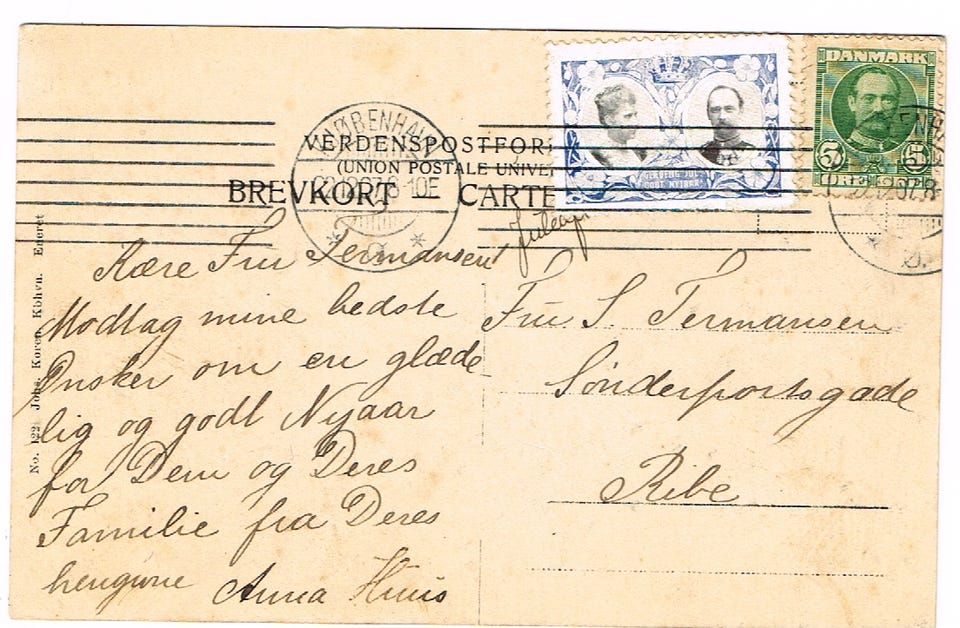 DANMARK
5 5
ØRE
GLÆDELIG JUL
GODT NYTAAR
KJØBENHAVN
VERDENSPOSTFOR
(UNION POSTALE UNIVE
BREVKORT CARTE
Kære Fru Termansen!
Modtag mine bedste
Ønsker om en glæde
lig og godt Nyaar
for Dem og Deres
Familie fra Deres
hengivne Anna Huus
Fru S. Termansen
Sønderportsgade
Ribe
No. 122 Johs. Koren, Kbhvn. Eneret